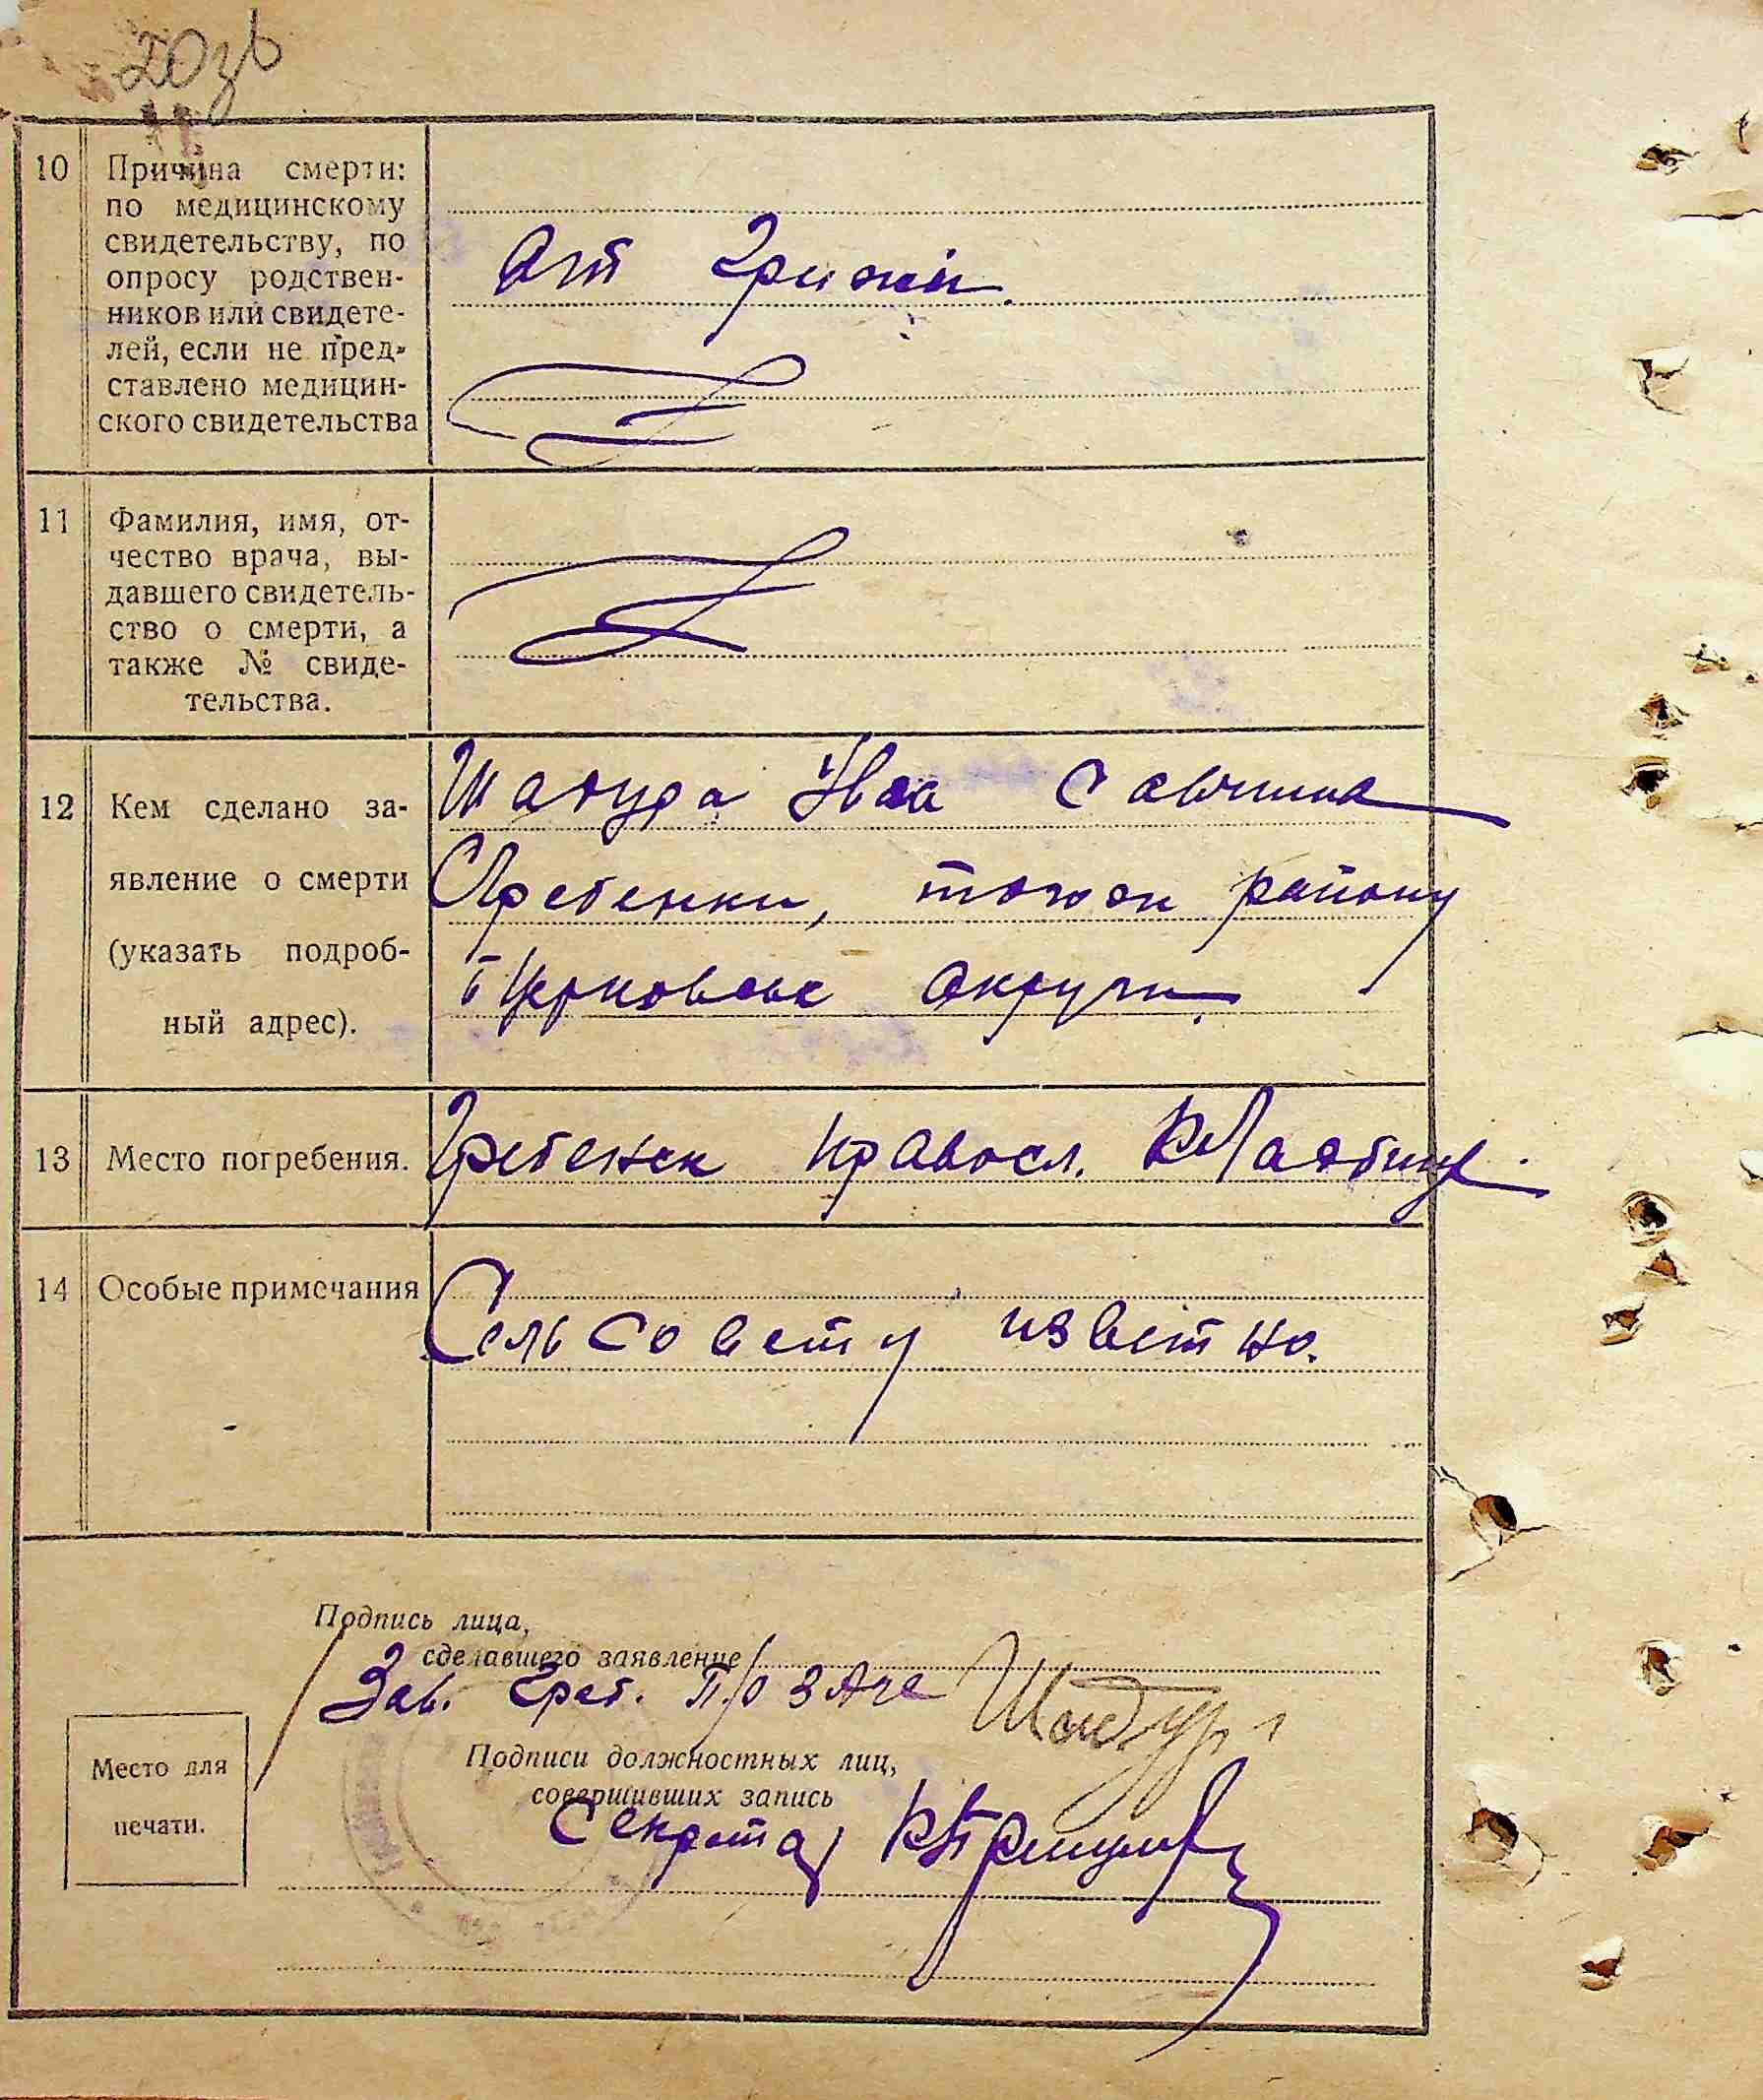 10
Причина смерти:
по медицинскому
свидетельству, по
опросу родствен-
ников или свидете-
лей, если не пред-
ставлено медицин-
ского свидетельства
От Грижи.
11
Фамилия, имя, от-
чество врача, вы-
давшего свидетель-
ство о смерти, а
также № свиде-
тельства.
12
Кем сделано за-
явление о смерти
(указать подроб-
ный адрес).
Шадура
С Гребенки, району
Б Церковськ Округи.
13
Место погребения.
Гребенск правосл. Кладбище
14
Особые примечания
Сельсовету известно.
Подпись лица,
сделавшего заявление
Зав. Греб. П/О ЗАГС Шадур
Подписи должностных лиц,
совершивших запись
Секретар
Место для
печати.